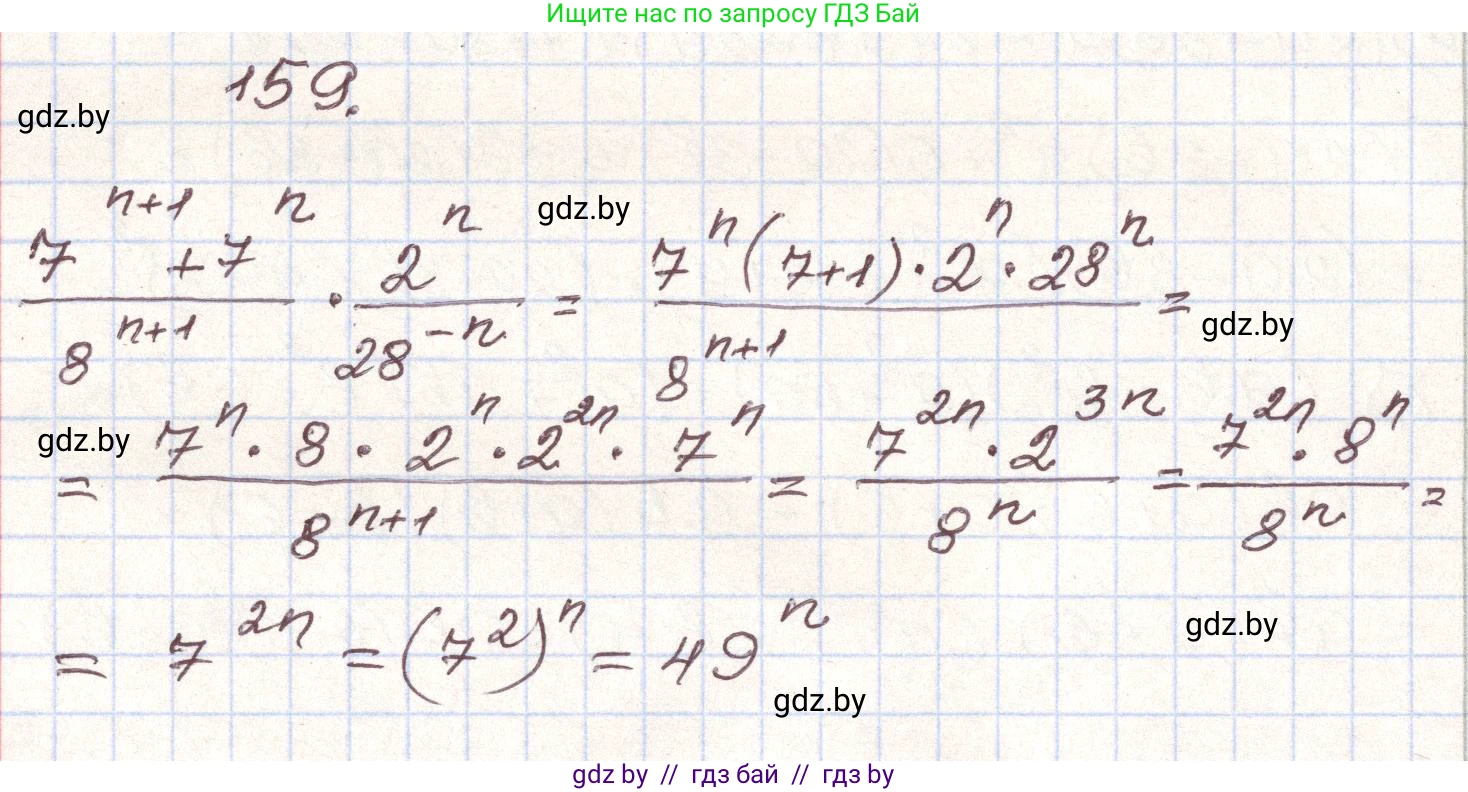 Ищите нас по запросу ГДЗ Бай
159.
gdz.by
gdz.by
(7^(n+1) + 7^n)/(8^(n+1)) · (2^n)/(28^(-n)) = (7^n(7+1) · 2^n · 28^n)/(8^(n+1)) =
gdz.by
gdz.by
= (7^n · 8 · 2^n · 2^(2n) · 7^n)/(8^(n+1)) = (7^(2n) · 2^(3n))/(8^n) = (7^(2n) · 8^n)/(8^n) =
= 7^(2n) = (7^2)^n = 49^n
gdz.by
gdz.by
gdz by // гдз бай // гдз by